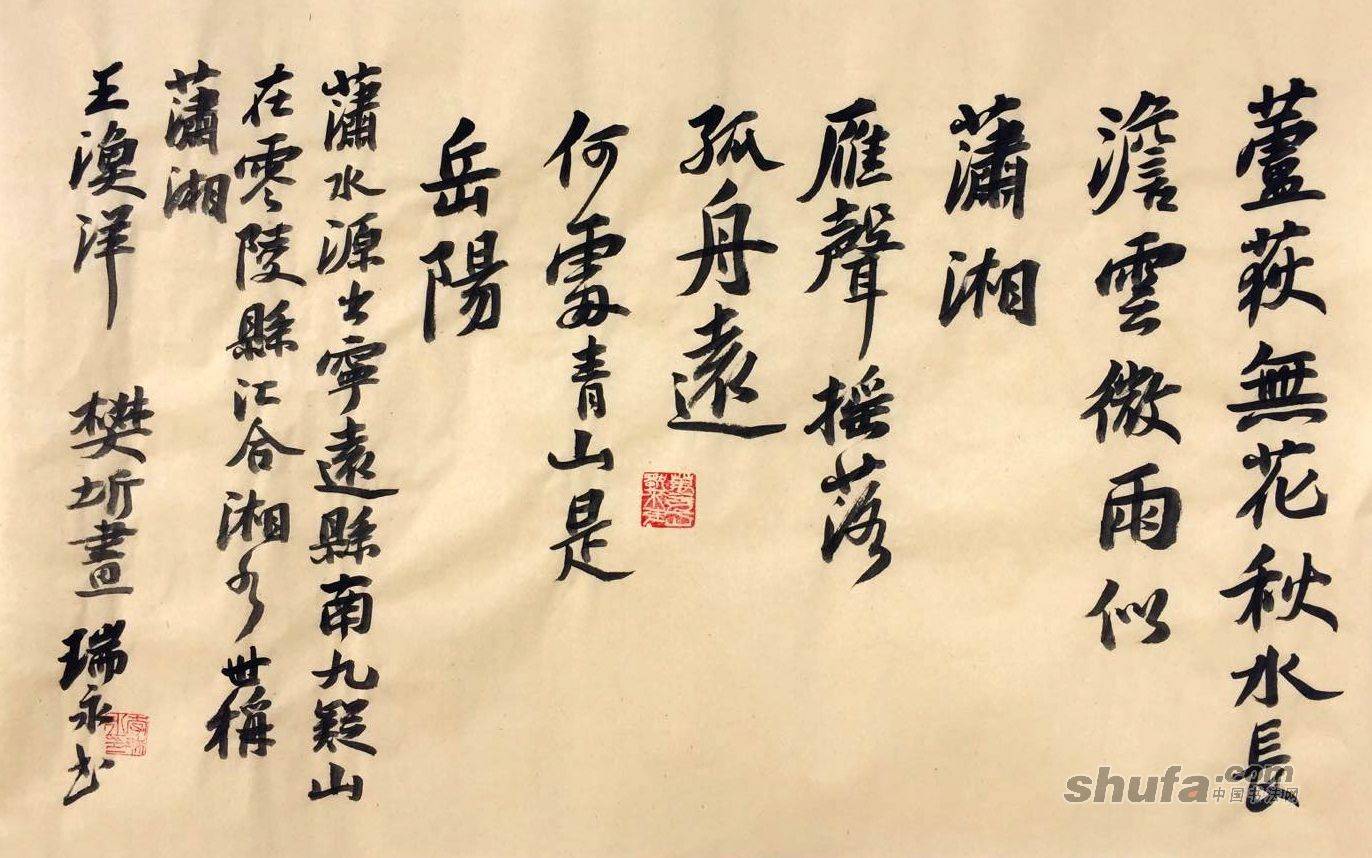 蘆荻無花秋水長
澹雲微雨似
瀟湘
雁聲搖落
孤舟遠
何處青山是
岳陽
瀟水源出寧遠縣南九疑山
在零陵縣江合湘水世稱
瀟湘
王漁洋 樊圻畫 瑞永书
shufa.com
中国书法网